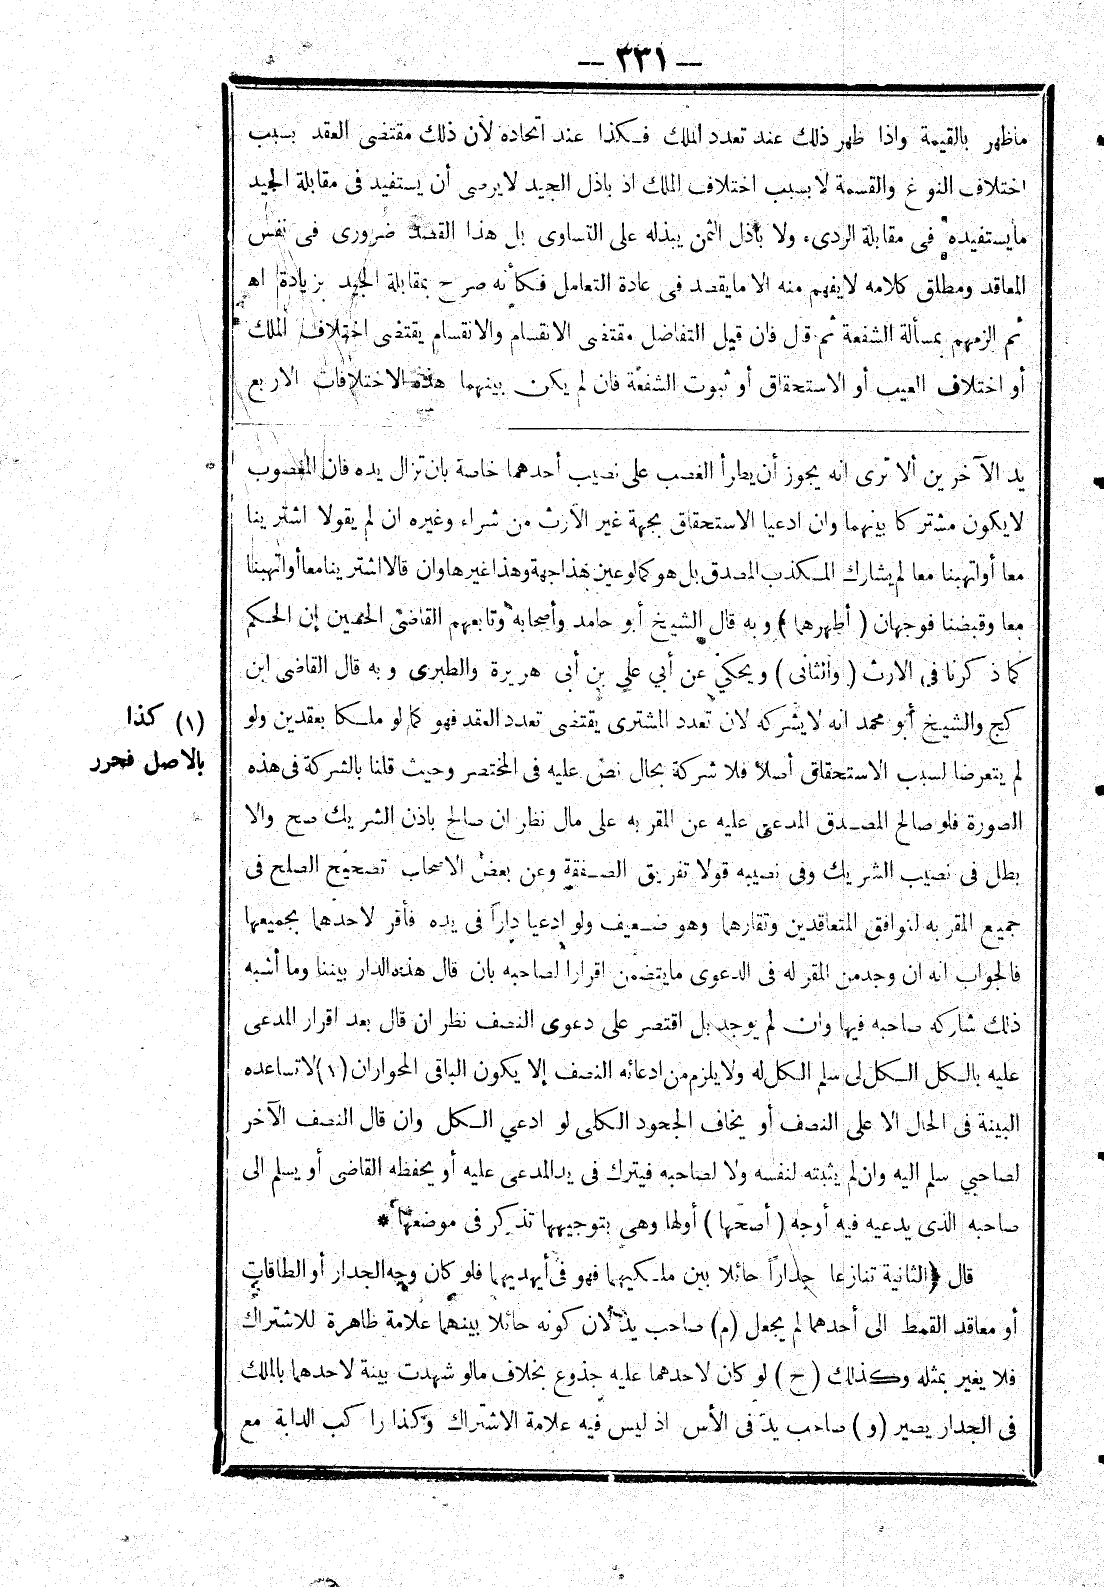 — ٣٣١ —
ماظهر بالقيمة واذا ظهر ذلك عند تعدد الملك فكذا عند اتحاده لأن ذلك مقتضى العقد بسبب
اختلاف النوع والقسمة لا بسبب اختلاف الملك اذ باذل الجيد لا يرضى أن يستفيد فى مقابلة الجيد
مايستفيده فى مقابلة الردىء ولا باذل الثمن يبذله على التساوى بل هذا القصد ضرورى فى نفس
المعاقد ومطلق كلامه لايفهم منه الا مايقصد فى عادة التعامل فكأنه صرح بمقابلة الجيد بزيادة اه
ثم الزمهم بمسألة الشفعة ثم قال فان قيل التفاضل مقتضى الانقسام والانقسام يقتضى اختلاف الملك
أو اختلاف العيب أو الاستحقاق أو ثبوت الشفعة فان لم يكن بينهما هذه الاختلافات الاربع
يد الآخرين ألا ترى انه يجوز أن يطرأ الغصب على نصيب أحدهما خاصة بان تزال يده فان المغصوب
لايكون مشتركا بينهما وان ادعيا الاستحقاق بجهة غير الارث من شراء وغيره ان لم يقولا اشترينا
معا أو اتهبنا معا لم يشارك المكذب المصدق بل هو كما لو عين هذا جهة وهذا غيرها وان قالا اشترينا معا أو اتهبنا
معا وقبضنا فوجهان ( أظهرهما ) وبه قال الشيخ أبو حامد وأصحابه وتابعهم القاضى الحسين إن الحكم
كما ذكرنا فى الارث ( والثانى ) ويحكي عن أبي علي بن أبى هريرة والطبرى وبه قال القاضى ابن
كج والشيخ أبو محمد انه لا يشركه لان تعدد المشترى يقتضى تعدد العقد فهو كما لو ملكا بعقدين ولو
لم يتعرضا لسبب الاستحقاق أصلا فلا شركة بحال نص عليه فى المختصر وحيث قلنا بالشركة فى هذه
الصورة فلو صالح المصدق المدعى عليه عن المقر به على مال نظر ان صالح باذن الشريك صح والا
بطل فى نصيب الشريك وفى نصيبه قولا تفريق الصفقة وعن بعض الاصحاب تصحيح الصلح فى
جميع المقر به لتوافق المتعاقدين وتقارهما وهو ضعيف ولو ادعيا داراً فى يده فأقر لاحدهما بجميعها
فالجواب انه ان وجد من المقر له فى الدعوى مايتضمن اقراراً لصاحبه بان قال هذه الدار بيننا وما أشبه
ذلك شاركه صاحبه فيها وان لم يوجد بل اقتصر على دعوى النصف نظر ان قال بعد اقرار المدعى
عليه بالكل الكل لى سلم الكل له ولا يلزم من ادعائه النصف إلا يكون الباقى المحواران (١) لا تساعده
البينة فى الحال الا على النصف أو يخاف الجحود الكلى لو ادعي الكل وان قال النصف الآخر
لصاحبي سلم اليه وان لم يثبته لنفسه ولا لصاحبه فيترك فى يد المدعى عليه أو يحفظه القاضى أو يسلم الى
صاحبه الذى يدعيه فيه أوجه ( أصحها ) أولها وهى بتوجيهها تذكر فى موضعها *
قال ﴿ الثانية تنازعا جداراً حائلا بين ملكيهما فهو فى أيديهما فلو كان وجه الجدار أو الطاقات
أو معاقد القمط الى أحدهما لم يجعل (م) صاحب يد لأن كونه حائلا بينهما علامة ظاهرة للاشتراك
فلا يغير بمثله وكذلك ( ح ) لو كان لاحدهما عليه جذوع بخلاف مالو شهدت بينة لاحدهما بالملك
فى الجدار يصير ( و ) صاحب يد فى الأس اذ ليس فيه علامة الاشتراك وكذا راكب الدابة مع
(١) كذا
بالاصل فحرر